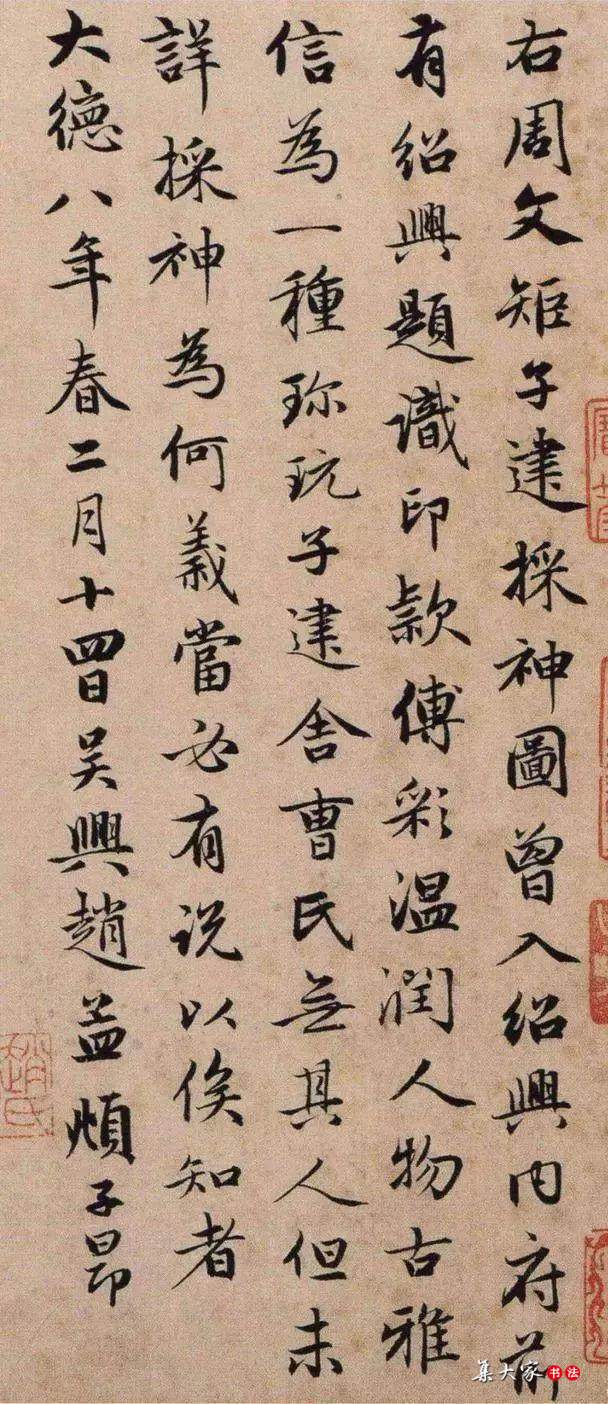 右周文矩子建採神圖曾入紹興内府前
有紹興題識印款傅彩温潤人物古雅
信為一種珎玩子建舎曹氏無其人但未
詳採神為何義當必有说以俟知者
大德八年春二月十四日吴興趙孟頫子昂
趙氏
集大家书法